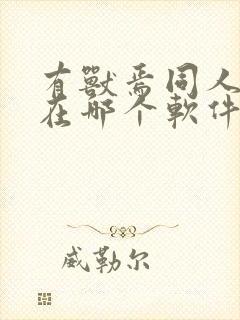 有獸焉同人
在哪个軟件
威勒尔